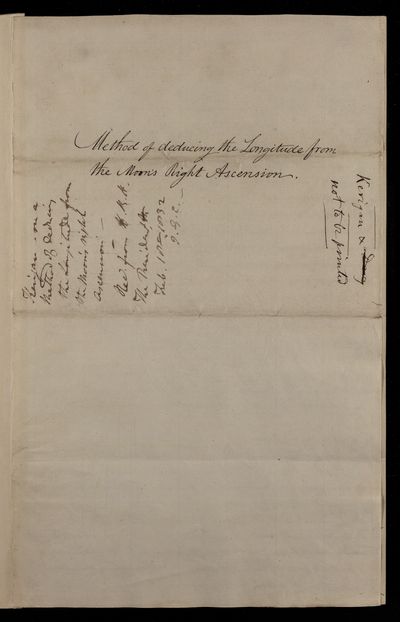 Method of deducing the Longitude from
the Moons Right Ascension.
Kerigan on a
Method of deducing
the Longitude from
the Moon's right
ascension —
Recd from H.R.H.
The President
Feb. 11th 1832
J.G.C.
Kerigan
not to be printed